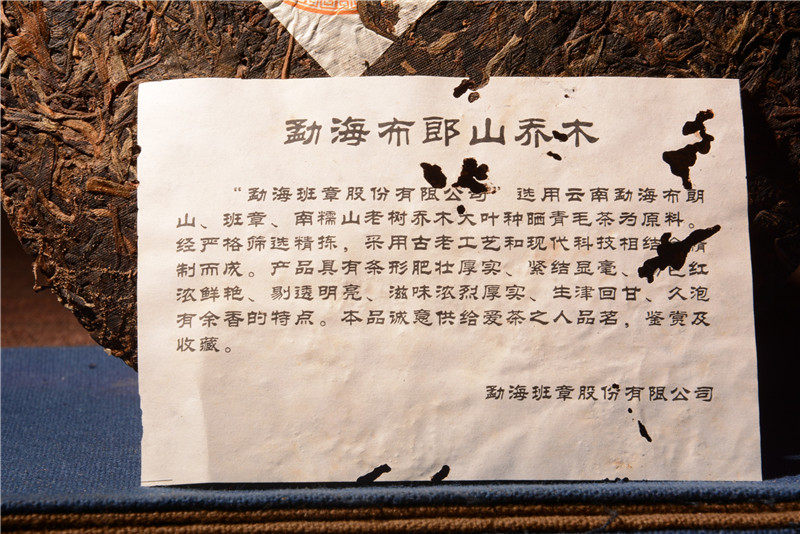 勐海布郎山乔木
“勐海班章股份有限公司 选用云南勐海布朗
山、班章、南糯山老树乔木大叶种晒青毛茶为原料。
经严格筛选精拣，采用古老工艺和现代科技相结
制而成。产品具有条形肥壮厚实、紧结显毫、 红
浓鲜艳、剔透明亮、滋味浓烈厚实、生津回甘、久泡
有余香的特点。本品诚意供给爱茶之人品茗，鉴赏及
收藏。
勐海班章股份有限公司